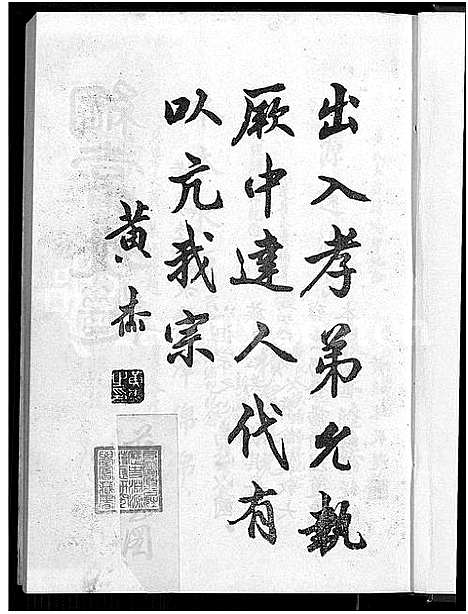 出入孝弟允執
厥中達人代有
以亢我宗
黄杰